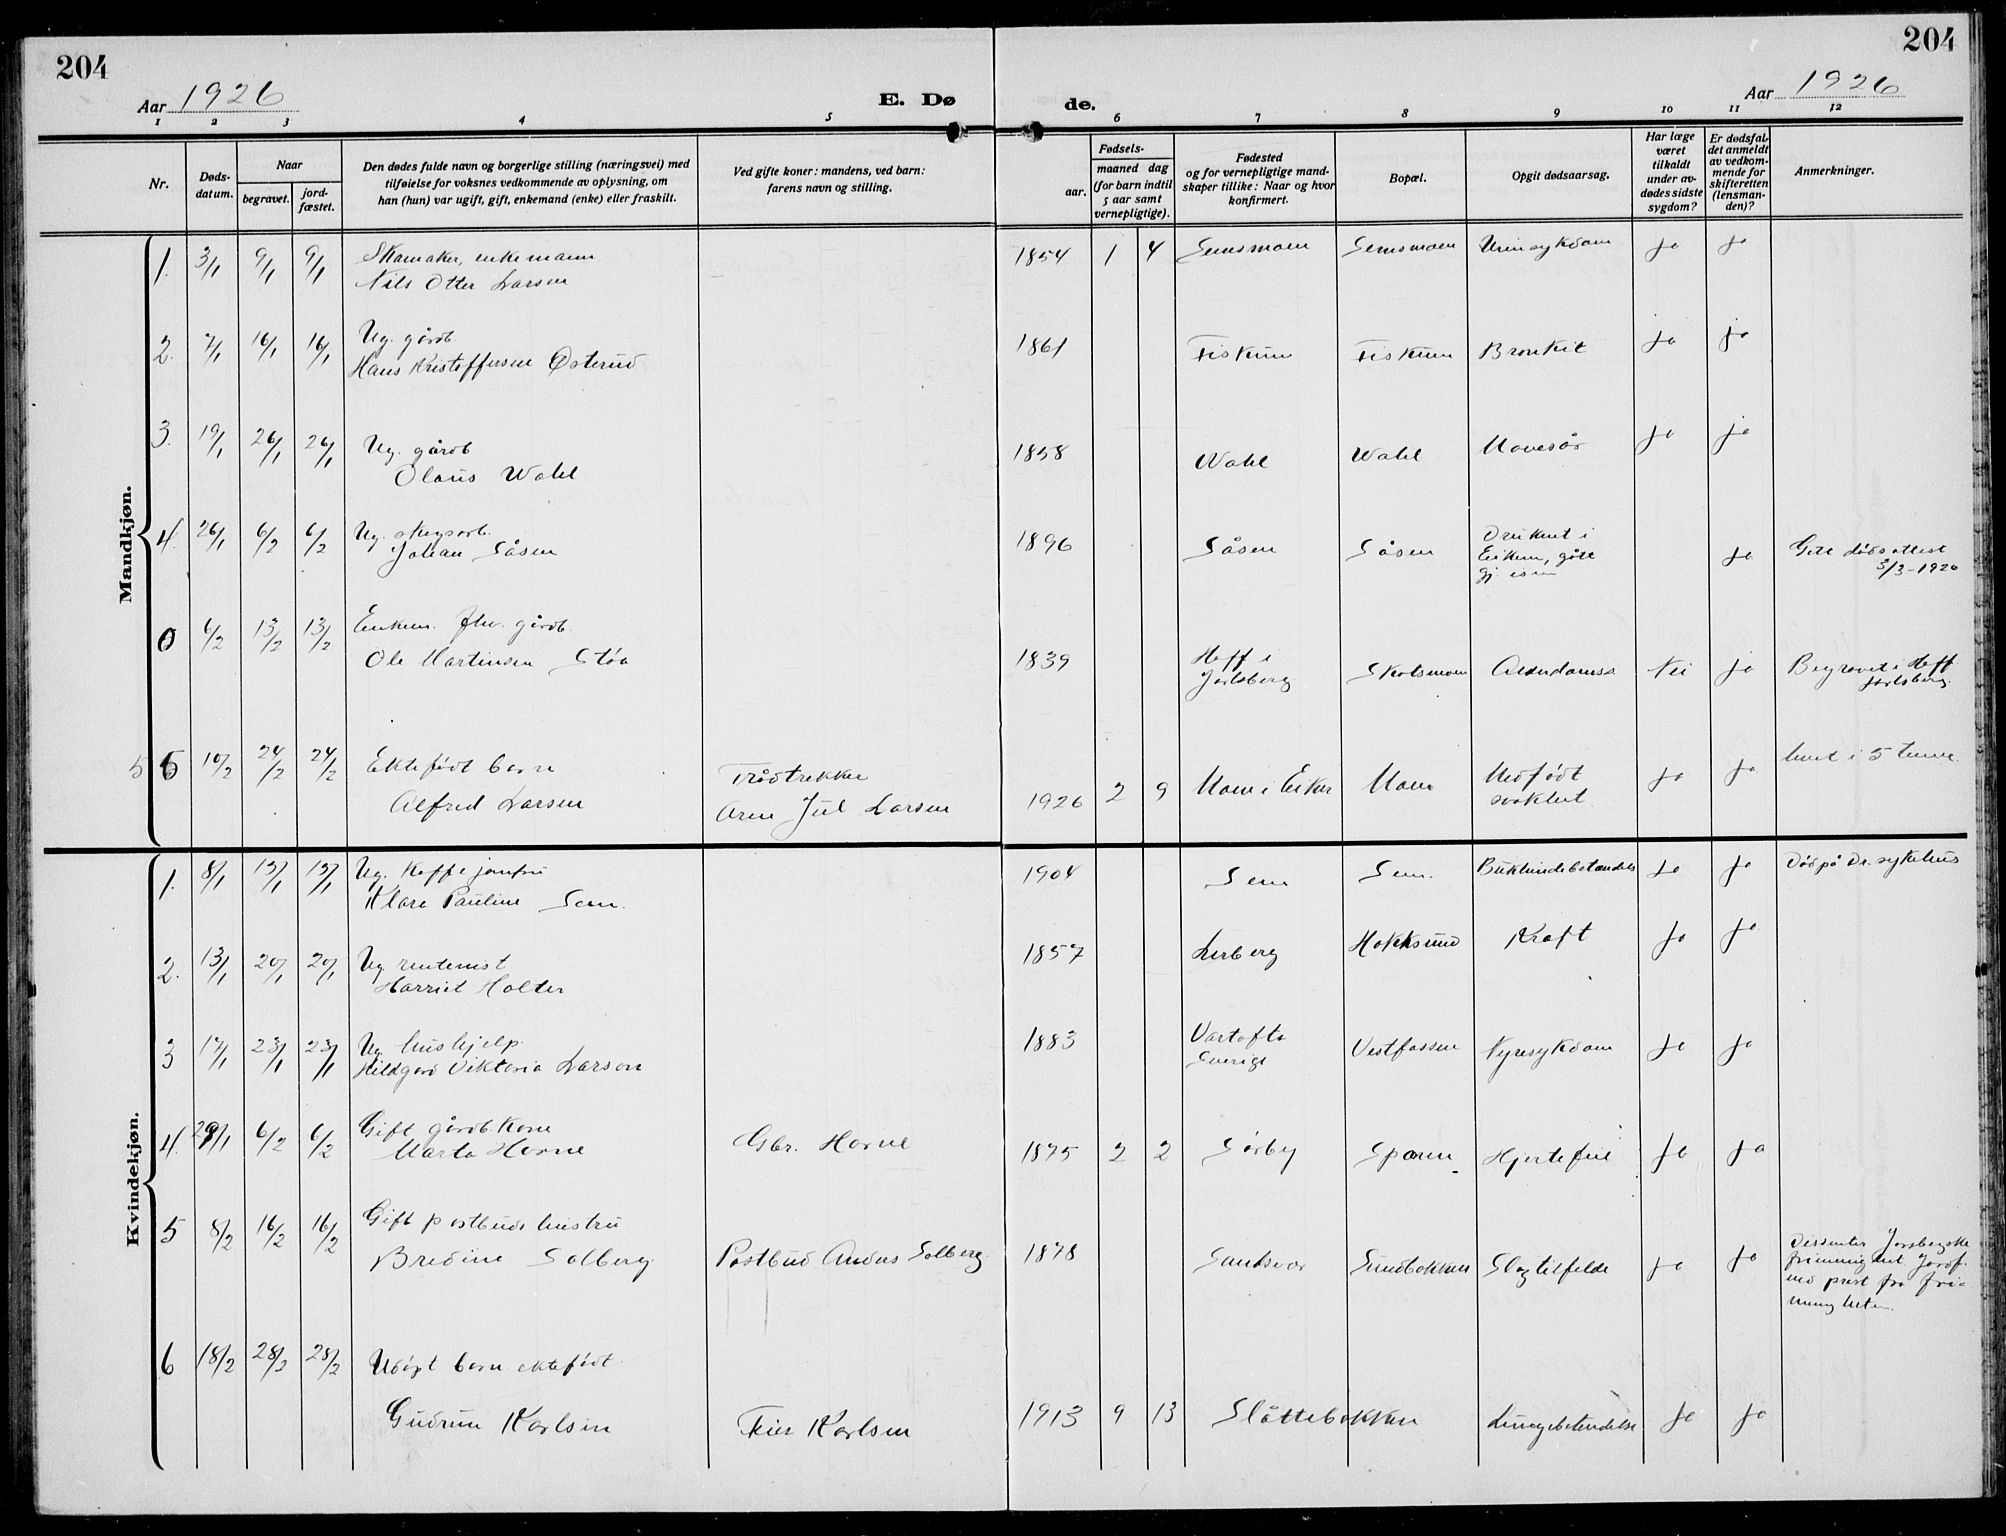 204
204
Aar 1926
E. Døde.
Aar 1926
1 2 3 4 5 6 7 8 9 10 11 12
Nr.
Døds-
datum.
Naar
begravet.
jord-
fæstet.
Den dødes fulde navn og borgerlige stilling (næringsvei) med
tilføielse for voksnes vedkommende av oplysning, om
han (hun) var ugift, gift, enkemand (enke) eller fraskilt.
Ved gifte koner: mandens, ved barn:
farens navn og stilling.
Fødsels-
aar.
maaned dag
(for barn indtil
5 aar samt
vernepligtige).
Fødested
og for vernepligtige mand-
skaper tillike: Naar og hvor
konfirmert.
Bopæl.
Opgit dødsaarsag.
Har læge
været
tilkaldt
under av-
dødes sidste
sygdom?
Er dødsfal-
det anmeldt
av vedkom-
mende for
skifteretten
(lensman-
den)?
Anmerkninger.
Mandkjøn.
1. 3/1 9/1 9/1 Skomaker, enkemann 1854 1 4 Semsmoen Semsmoen Urinsykdom Ja Ja
Nils Otter Larsen
2. 7/1 16/1 16/1 Ug. gårdb 1861 Fiskum Fiskum Bronkit Ja Ja
Hans Kristoffersen Østerud
3. 19/1 26/1 26/1 Ug. gårdb 1858 Wahl Wahl Mavesår Ja Ja
Olaus Wahl
4. 26/1 6/2 6/2 Ug. skogsarb. 1896 Såsen Såsen Druknet i
Johan Såsen Eikern, gått
gj isen Ja Gitt dødsattest
3/3-1926
0 6/2 13/2 13/2 Enkem. fhv. gårdb. 1839 Hoff i
Jarlsberg Skotsmoen Alderdomss. Nei Ja Begravet i Hoff
Jarlsberg.
Ole Martinsen Støa
5 10/2 24/2 24/2 Ektefødt barn Trådtrekker 1926 2 9 Moen i Eiker Moen Medfødt
svakhet Ja Ja levet i 5 timer.
Alfred Larsen Arne Jul Larsen
Kvindekjøn.
1. 8/1 15/1 15/1 Ug. Kaffejomfru 1904 Sem Sem. Bukhindebetændelse Ja Ja Død på Dr. sykehus
Klara Pauline Sem.
2. 13/1 20/1 20/1 Ug rentenist 1857 Lerberg Hokksund Kræft Ja Ja
Harriet Holter
3 17/1 23/1 23/1 Ug. hushjelp. 1883 Vartofta
Sverige Vestfossen Nyresykdom Ja Ja
Hildgard Viktoria Larson
4. 29/1 6/2 6/2 Gift gårdb.kone Gbr. Horne 1875 2 2 Sørby Sporen Hjertefeil Ja Ja
Marta Horne
5 8/2 16/2 16/2 Gift postbuds hustru 1878 Sandsvær Sundbakken Slagtilfelde Ja Ja
Bredine Solberg. Postbud Anders Solberg.
Dissenter Jarsbergske
frimenighet Jordf.
ved prest fra fri-
menigheten.
6 18/2 28/2 28/2 Udøpt barn ektefødt.
Gudrun Karlsen Karlsen 1913 9 13 Slåttebakken Lungebetendelse Ja Ja